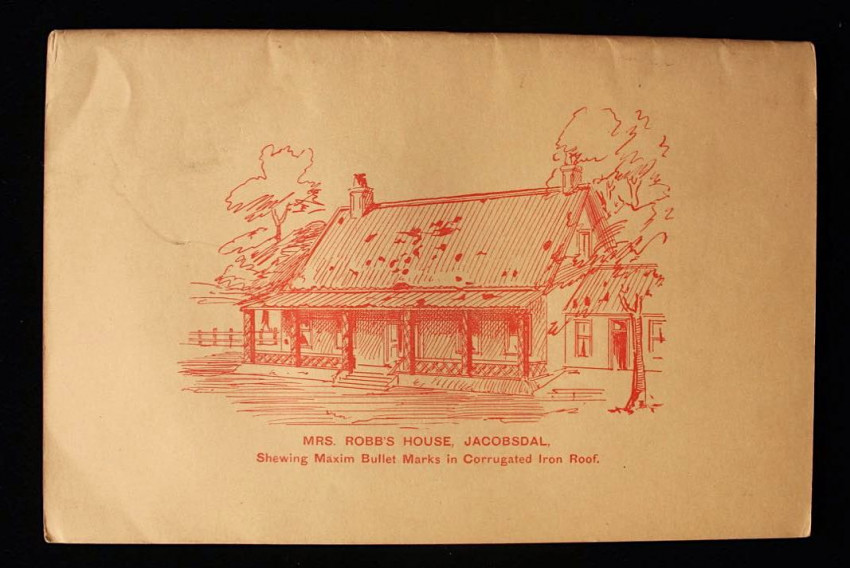 MRS. ROBB'S HOUSE, JACOBSDAL,
Shewing Maxim Bullet Marks in Corrugated Iron Roof.